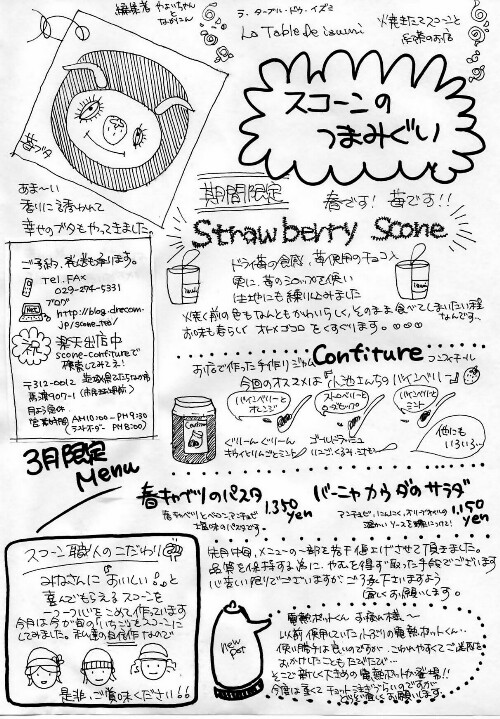 編集者 やよいちゃん
と
なおりこん
ラ・ターブル・ドゥ・イズミ
La Table De izumi
焼きたてスコーンと
紅茶のお店
スコーンの
つまみぐい
苺ブタ
あま〜い
香りに誘われて
幸せのブタもやってきました。
期間限定
春です! 苺です!!
Strawberry Scone
ドライ苺の食感、苺使用のチョコ入
更に苺のシロップを使い
生地にも練り込みました
焼く前の色もなんともかわいらしく、そのまま食べてしまいたい程
なんです…
お味も春らしく オトメゴコロ をくすぐります。
ご予約、発送も承ります。
Tel. FAX
029-274-5331
ブログ
http://blog.drecom.
jp/scone_tea/
祝
楽天出店中
scone-confitureで
検索してみてネ!
〒312-0012
馬渡907-1
月よう定休
営業時間 AM10:00~PM9:30
ラストオーダー PM8:00
お店で作った手作りジャム Confiture コンフィチュール
今回のオススメは『小池さんちのパインベリー』
パインベリーと
オレンジ
ストロベリーと
パインベリーと
ミント
他にも
いろいろ…
ぐりーん ぐりーん
キウイとりんごとミント
ゴールドラッシュ
3月限定
Menu
春キャベツのパスタ 1,350
yen
春キャベツとベーコン、アンチョビ
塩味のパスタです。
バーニャカウダのサラダ
1,150
yen
アンチョビ、にんにく、オリーブオイルの
温かいソースを野菜につけて!
スコーン職人のこだわり
みなさんに おいしい と
喜んでもらえる スコーンを
一つ一つ心をこめて作っています
今月は今が旬のいちごをスコーンに
してみました。私達の自信作なので
是非、ご賞味ください
先日、メニューの一部を若干値上げさせて頂きました。
品質を保持する為に、やむを得ず取った手段でございます
心苦しい限りでございますが ご了承下さいますよう
宜しくお願いします。
new
pot
電熱ポットくん お疲れ様〜
以前使用していた小ぶりの電熱ポットくん…
使い勝手は良いのですが、こわれやすくてご迷惑を
おかけしたことも たびたび…
そこで新しく大きめの電熱ポットが登場!!
今度は重くて チョット注ぎづらいのですが
どうぞ宜しくお願いします。